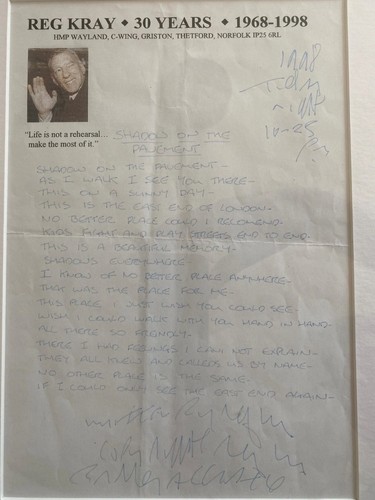 REG KRAY ◆ 30 YEARS ◆ 1968-1998
HMP WAYLAND, C-WING, GRISTON, THETFORD, NORFOLK IP25 6RL
1998
Friday
night
10-25
pm
"Life is not a rehearsal...
make the most of it."
SHADOW ON THE
PAVEMENT
SHADOW ON THE PAVEMENT -
AS I WALK I SEE YOU THERE -
THIS ON A SUNNY DAY -
THIS IS THE EAST END OF LONDON -
NO BETTER PLACE COULD I RECOMEND -
KIDS FIGHT AND PLAY STREETS END TO END -
THIS IS A BEAUTIFUL MEMORY -
SHADOWS EVERYWHERE -
I KNOW OF NO BETTER PLACE ANYWHERE -
THAT WAS THE PLACE FOR ME -
THIS PLACE I JUST WISH YOU COULD SEE -
WISH I COULD WALK WITH YOU HAND IN HAND -
ALL THOSE SO FRIENDLY -
THERE I HAD FEELINGS I CAN NOT EXPLAIN -
THEY ALL KNEW AND CALLED US BY NAME -
NO OTHER PLACE IS THE SAME -
IF I COULD ONLY SEE THE EAST END AGAIN -
written by Reg Kray
copyright Reg Kray